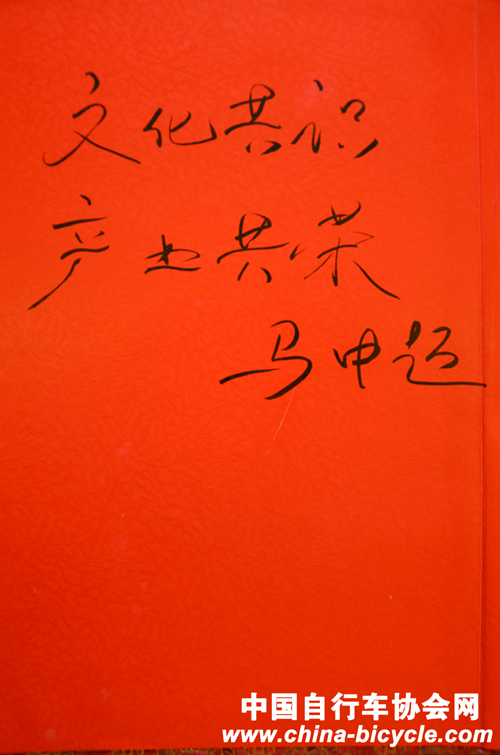 文化共识
产业共荣
马中超
中国自行车协会网
www.china-bicycle.com